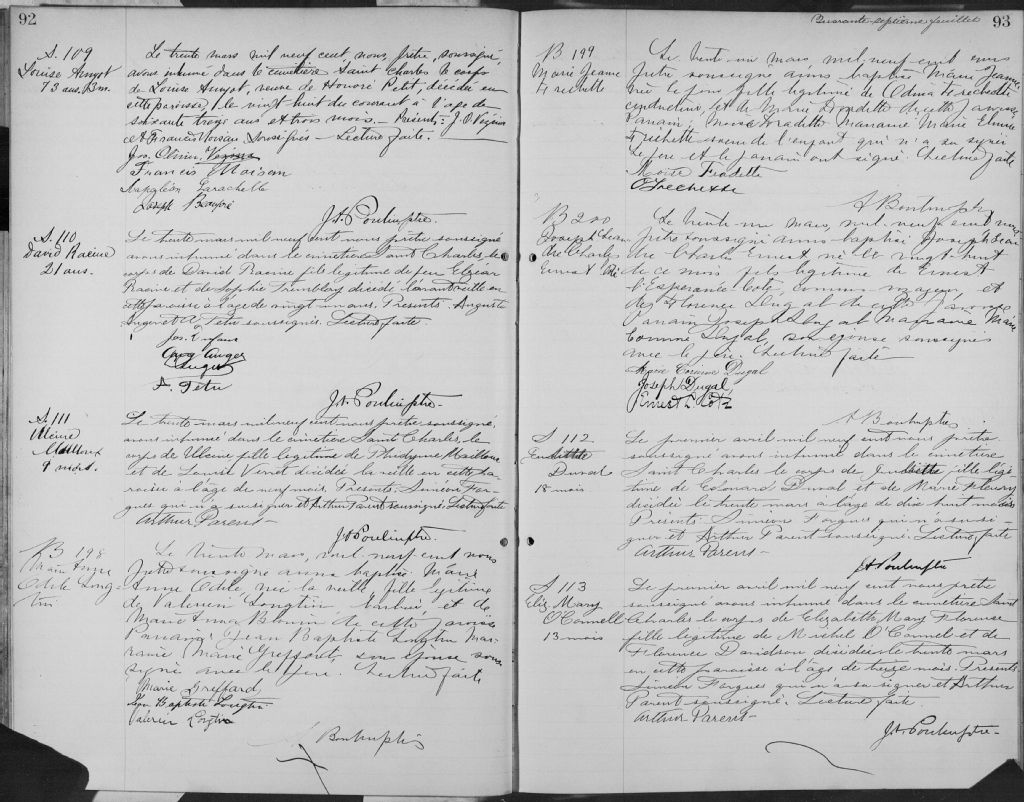 92
S. 109
Louise Amyot
73 ans. 3m.
Le trente mars mil neuf cent, nous, prêtre, soussigné,
avons inhumé dans le cimetière Saint Charles le corps
de Louise Amyot, veuve de Honoré Petit, décédée en
cette paroisse, le vingt huit du courant à l'âge de
soixante treize ans et trois mois. Présents: J. O Vézina
et Francis Moisan soussignés - Lecture faite.
Jos. Vézina
Francis Moisan
Napoléon Larochelle
Joseph Beaupré
J. A. Poulin ptre.
S. 110
David Racine
21 ans.
Le trente mars mil neuf cent nous prêtre soussigné
avons inhumé dans le cimetière Saint Charles, le
corps de David Racine fils légitime de feu Elzéar
Racine et de Sophie Tremblay décédé l'avant veille en
cette paroisse à l'âge de vingt un ans. Présents Auguste
Auger et A Tetu soussignés. Lecture faite.
Aug Auger
Auger
A. Tetu
J. A. Poulin ptre.
S. 111
9 mois.
Le trente mars mil neuf cent nous prêtre soussigné,
avons inhumé dans le cimetière Saint Charles, le
corps de fille légitime de Mailloux
et de décédée la veille en cette pa-
roisse à l'âge de neuf mois. Présents: Siméon For-
gues qui n'a su signer et Arthur Parent soussigné. Lecture faite
Arthur Parent -
J. A. Poulin ptre.
B 198
Marie Anne
Odile Long
tin
Le trente mars, mil neuf cent nous
prêtre soussigné avons baptisé Marie
Anne Odile, née la veille, fille légitime
de Valérien Longtin, et de
Marie Anna de cette paroisse
Parrain Jean Baptiste Longtin Mar-
raine Marie Greffard, son épouse sous-
signé avec le père. Lecture faite
Marie Greffard
Jean Baptiste Longtin
Valérien Longtin
A Bouln ptre
Quarante-septième feuillet
93
B 199
Marie Jeanne
Frechette
Le trente un mars, mil neuf cent nous
prêtre soussigné avons baptisé Marie Jeanne,
née le jour fille légitime de Odina Frechette
conducteur, et de Marie Fradette de cette paroisse
Parrain; Moïse Fradette Marraine Marie
Frechette soeur de l'enfant qui n'a su signer
Le père et le parrain ont signé. Lecture faite
Moïse Fradette
O Frechette
A Bouln ptre
B 200
Joseph Jean
Bte Charles
Ernest Coté
Le trente un mars, mil neuf cent nous
prêtre soussigné avons baptisé Joseph Jean
Bte Charles Ernest né le vingt huit
de ce mois fils légitime de Ernest
l'Espérance Coté, commis majeur et
de Florence Dugal de cette paroisse
Parrain Joseph Dugal Marraine Marie
Corinne Dugal, son épouse soussignés
avec le père. Lecture faite
Marie Corinne Dugal
Joseph Dugal
Ernest L. Coté
A Bouln ptre
S 112
Duval
18 mois
Le premier avril mil neuf cent nous prêtre
soussigné avons inhumé dans le cimetière
Saint Charles le corps de fille légi-
time de Edouard Duval et de Marie Fleury
décédée le trente mars à l'âge de dix huit mois.
Présents: Siméon Forgues qui n'a su si-
gner et Arthur Parent soussigné. Lecture faite
Arthur Parent -
J. A. Poulin ptre
S 113
Eliz. Mary
O'Connell
13 mois
Le premier avril mil neuf cent nous prêtre
soussigné avons inhumé dans le cimetière Saint
Charles le corps de Elizabeth Mary Florence
fille légitime de Michel O'Connel et de
Florence Davidson décédée le trente mars
en cette paroisse à l'âge de treize mois. Présents
Siméon Forgues qui n'a su signer et Arthur
Parent soussigné. Lecture faite.
Arthur Parent -
J. A. Poulin ptre -